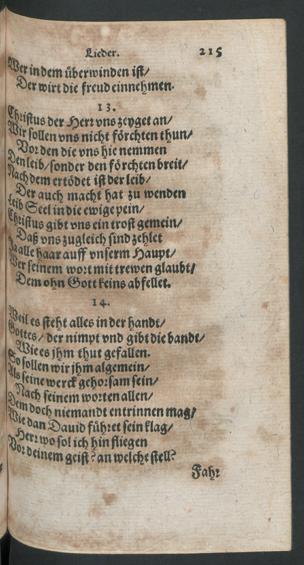 Lieder. 215
Wer in dem überwinden ist/
Der wirt die freud einnehmen.
13.
Christus der Herr vns zeyget an/
Wir sollen vns nicht förchten thun/
Vor den die vns hie nemmen
Den leib/ sonder den förchten breit/
Nach dem ertödet ist der leib/
Der auch macht hat zu wenden
Leib Seel in die ewige pein/
Christus gibt vns ein trost gemein/
Daß vns zugleich sind zehlet
Ja alle haar auff vnserm Haupt/
Wer seinem wort mit trewen glaubt/
Dem ohn Gott keins abfellet.
14.
Weil es steht alles in der handt/
Gottes/ der nimpt vnd gibt die bandt/
Wie es jhm thut gefallen.
So sollen wir jhm algemein/
Als seine werck gehorsam sein/
Nach seinem worten allen/
Dem doch niemandt entrinnen mag/
Wie dan Dauid führet sein klag/
Herr wo sol ich hin fliegen
Vor deinem geist? an welche stell?
Fahr